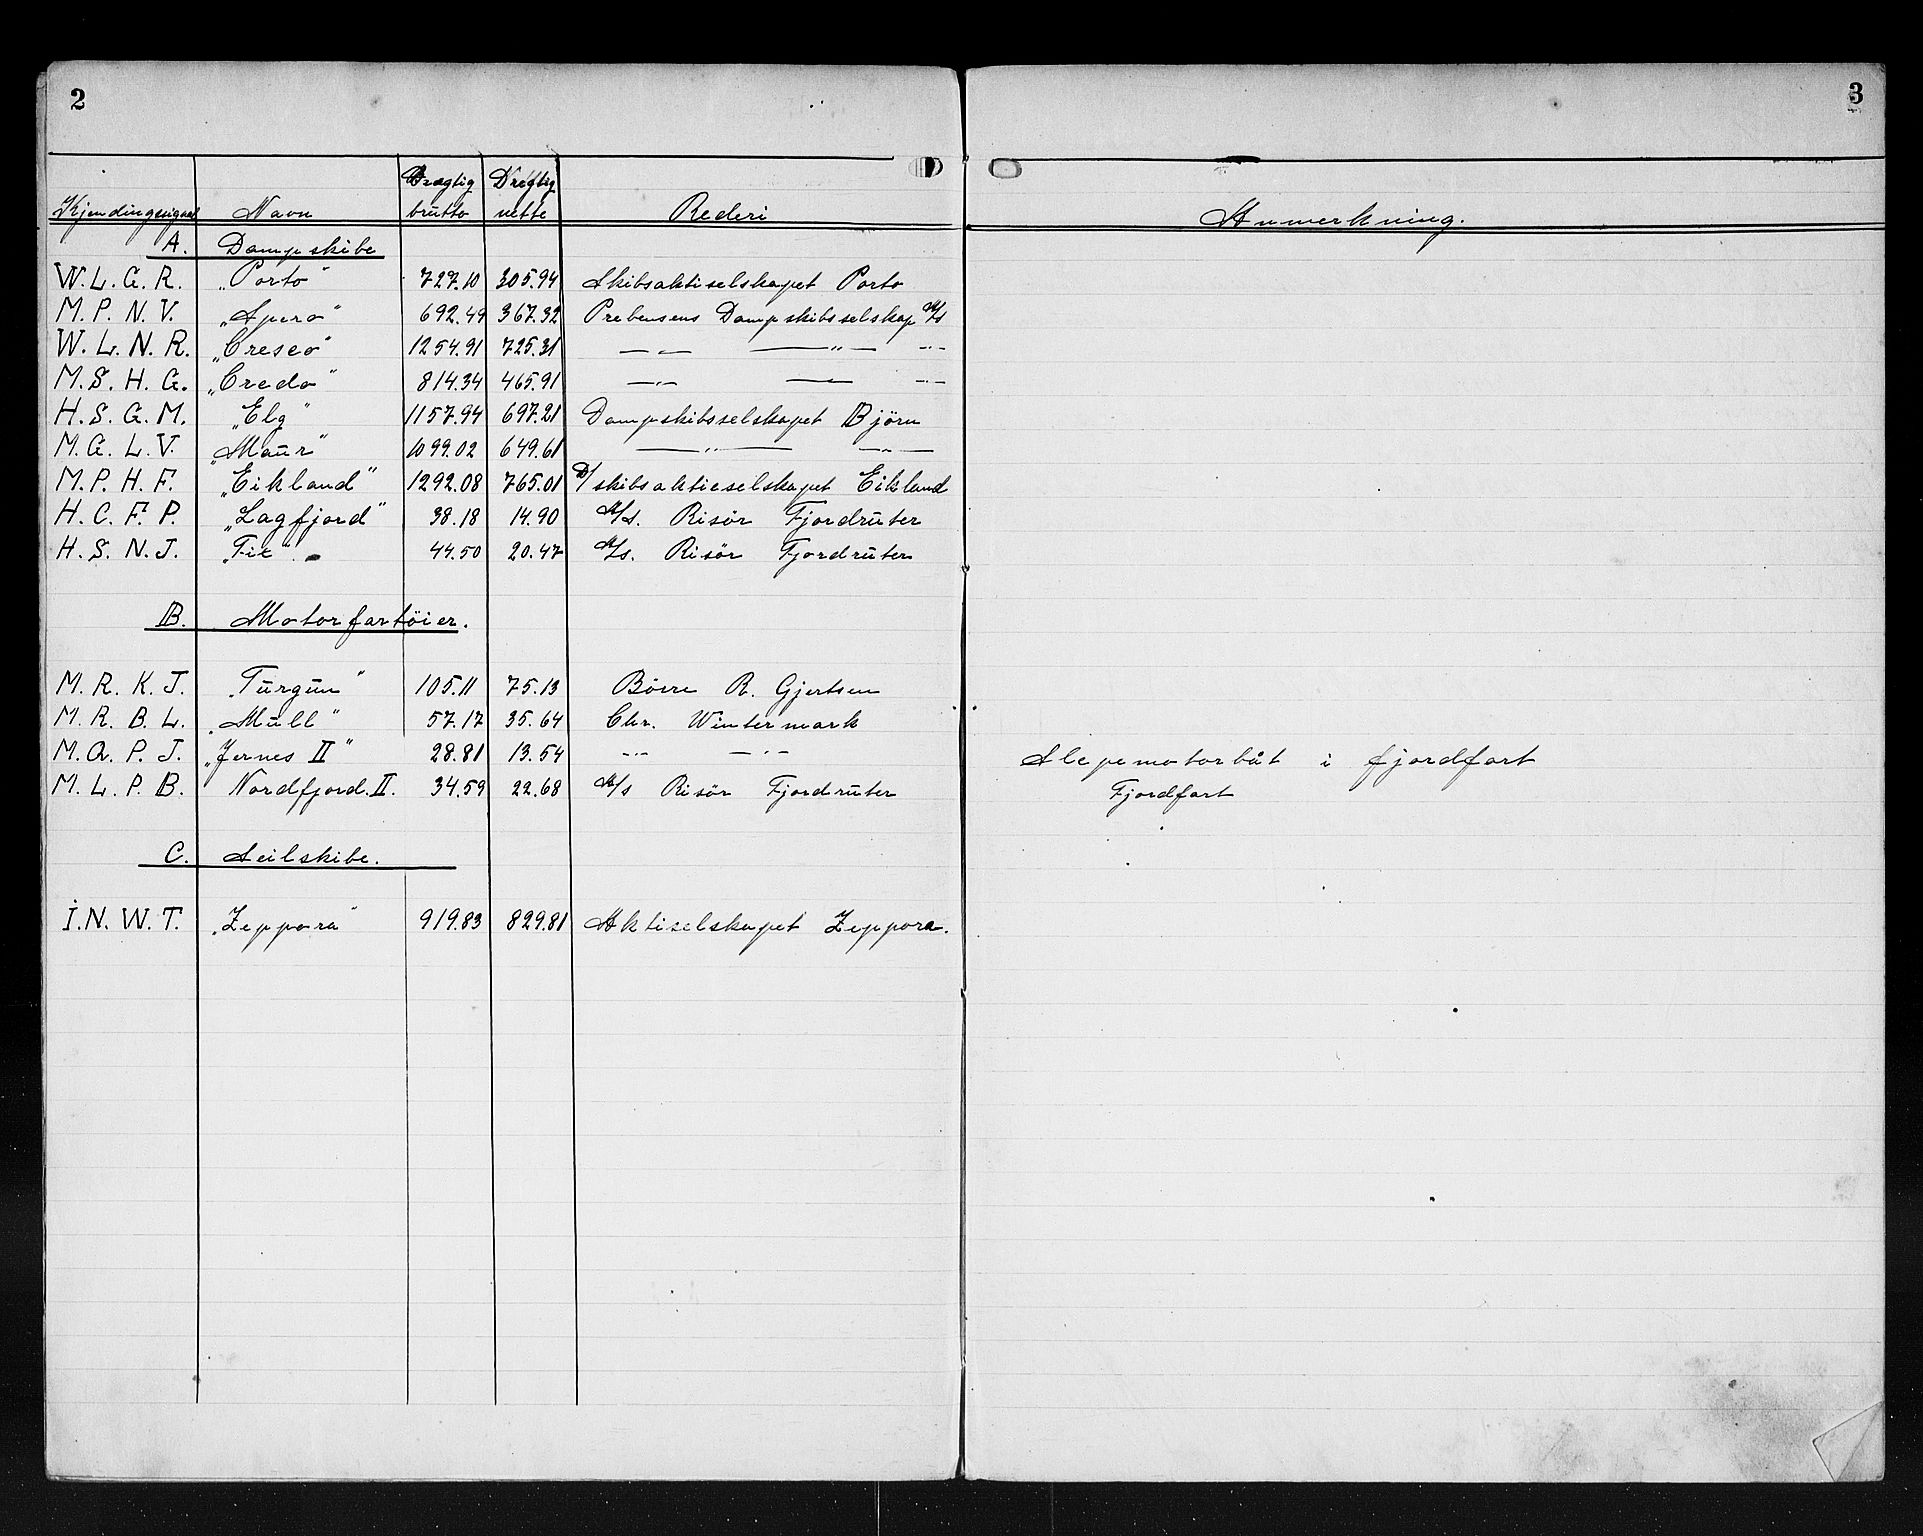 2
3
Drægtig Drægtig
Kjendingssignal Navn brutto nette Rederi Anmerkning.
A. Dampskibe
W. L. G. R. „Porto" 727.10 305.94 Skibsaktiselskapet Porto
M. P. N. V. „Spero" 692.49 367.32 Prebensens Dampskibsselskap A/s
W. L. N. R. „Cresco" 1254.91 725.31 —„— —„— -"-
M. S. H. G. „Credo" 814.34 465.91 —„— —„— -"-
H. S. G. M. „Elg" 1157.94 697.21 Dampskibsselskapet Björn
M. G. L. V. „Maur" 1099.02 649.61 —„— —„—
M. P. H. F. „Eikland" 1292.08 765.01 D/skibsaktieselskapet Eikland
H. C. F. P. „Lagfjord" 38.18 14.90 A/S. Risör Fjordruter
H. S. N. J. 44.50 20.47 A/s. Risör Fjordruter
B. Motorfartöier.
M. R. K. J. „Turgun" 105.11 75.13 Börre R. Gjertsen
M. R. B. L. „Mull" 57.17 35.64 Chr. Wintermark
M. Q. P. J. „Jernes II" 28.81 13.54 -"- -"- Slepemotorbåt i fjordfart
M. L. P. B. Nordfjord. II. 34.59 22.68 A/s Risör Fjordruter Fjordfart
C. Seilskibe.
I. N. W. T. „Zeppora" 919.83 829.81 Aktiselskapet Zeppora.